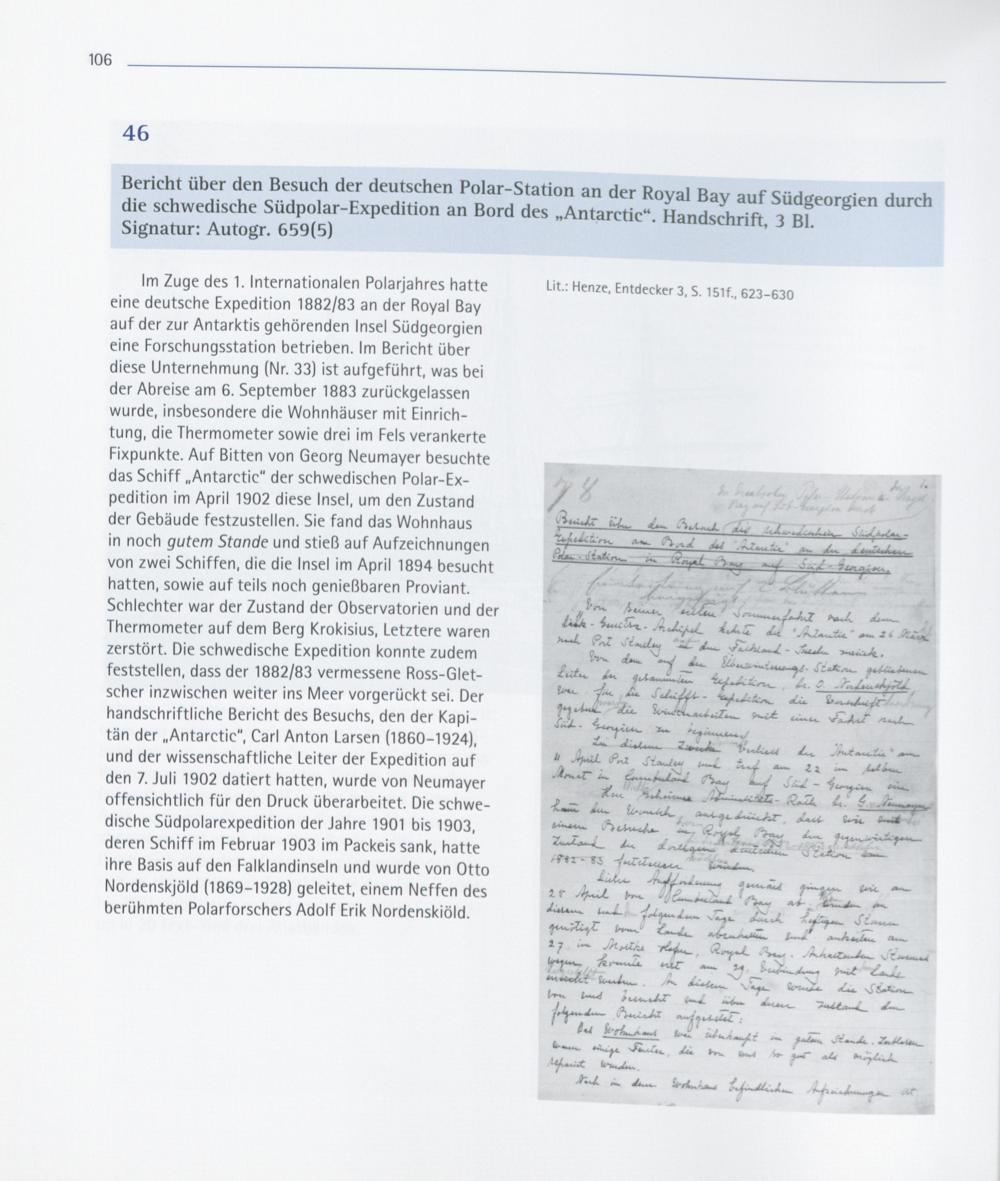 106
46
Bericht über den Besuch der deutschen Polar-Station an der Royal Bay auf Südgeorgien durch
die schwedische Südpolar-Expedition an Bord des „Antarctic“. Handschrift, 3 Bl.
Signatur: Autogr. 659(5)
Im Zuge des 1. Internationalen Polarjahres hatte
eine deutsche Expedition 1882/83 an der Royal Bay
auf der zur Antarktis gehörenden Insel Südgeorgien
eine Forschungsstation betrieben. Im Bericht über
diese Unternehmung (Nr. 33) ist aufgeführt, was bei
der Abreise am 6. September 1883 zurückgelassen
wurde, insbesondere die Wohnhäuser mit Einrich-
tung, die Thermometer sowie drei im Fels verankerte
Fixpunkte. Auf Bitten von Georg Neumayer besuchte
das Schiff „Antarctic“ der schwedischen Polar-Ex-
pedition im April 1902 diese Insel, um den Zustand
der Gebäude festzustellen. Sie fand das Wohnhaus
in noch gutem Stande und stieß auf Aufzeichnungen
von zwei Schiffen, die die Insel im April 1894 besucht
hatten, sowie auf teils noch genießbaren Proviant.
Schlechter war der Zustand der Observatorien und der
Thermometer auf dem Berg Krokisius, Letztere waren
zerstört. Die schwedische Expedition konnte zudem
feststellen, dass der 1882/83 vermessene Ross-Glet-
scher inzwischen weiter ins Meer vorgerückt sei. Der
handschriftliche Bericht des Besuchs, den der Kapi-
tän der „Antarctic“, Carl Anton Larsen (1860–1924),
und der wissenschaftliche Leiter der Expedition auf
den 7. Juli 1902 datiert hatten, wurde von Neumayer
offensichtlich für den Druck überarbeitet. Die schwe-
dische Südpolarexpedition der Jahre 1901 bis 1903,
deren Schiff im Februar 1903 im Packeis sank, hatte
ihre Basis auf den Falklandinseln und wurde von Otto
Nordenskjöld (1869–1928) geleitet, einem Neffen des
berühmten Polarforschers Adolf Erik Nordenskiöld.
Lit.: Henze, Entdecker 3, S. 151f., 623–630
Bericht über den Besuch der schwedischen Südpolar-
Expedition am Bord des "Antarctic" an der deutschen
Polar-Station in Royal Bay auf Süd-Georgien.
Von seiner ersten Sommerfahrt nach dem
Archipel kehrte die "Antarctic" am 26 März
nach Port Stanley auf den Falkland-Inseln zurück.
Von dem auf der Überwinterungs-Station gebliebenen
Leiter der gesammten Expedition, Dr. O. Nordenskjöld,
war für die Schiffs-Expedition die Vorschrift
gegeben die Winterarbeiten mit einer Fahrt nach
Süd-Georgien zu beginnen.
Zu diesem Zwecke verliess die "Antarctic" am
11 April Port Stanley und traf am 22 im selben
Monat in Cumberland Bay auf Süd-Georgien ein.
Herr Geheimer Admiralitäts-Rath Dr. G. Neumayer
hatte den Wunsch ausgedrückt, dass wir mit
einem Besuche in Royal Bay den gegenwärtigen
Zustand der dortigen deutschen Station von
1882-83 feststellen würden.
Dieser Aufforderung gemäss gingen wir am
25 April von Cumberland Bay ab, wurden an
diesem und folgendem Tage durch heftigen Sturm
genötigt vom Lande abzuhalten und ankerten am
27. im Moltke Hafen, Royal Bay. Anhaltenden Sturmes
wegen konnte erst am 29. Verbindung mit Lande
werden. An diesem Tage wurde die Station
von uns besucht und über deren Zustand den
folgenden Bericht aufgesetzt:
Das Wohnhaus war überhaupt in gutem Stande. Zerblasen
waren einige Fenster, die von uns so gut als möglich
repariert wurden.
Nach in dem Wohnhaus befindlichen Aufzeichnungen ist